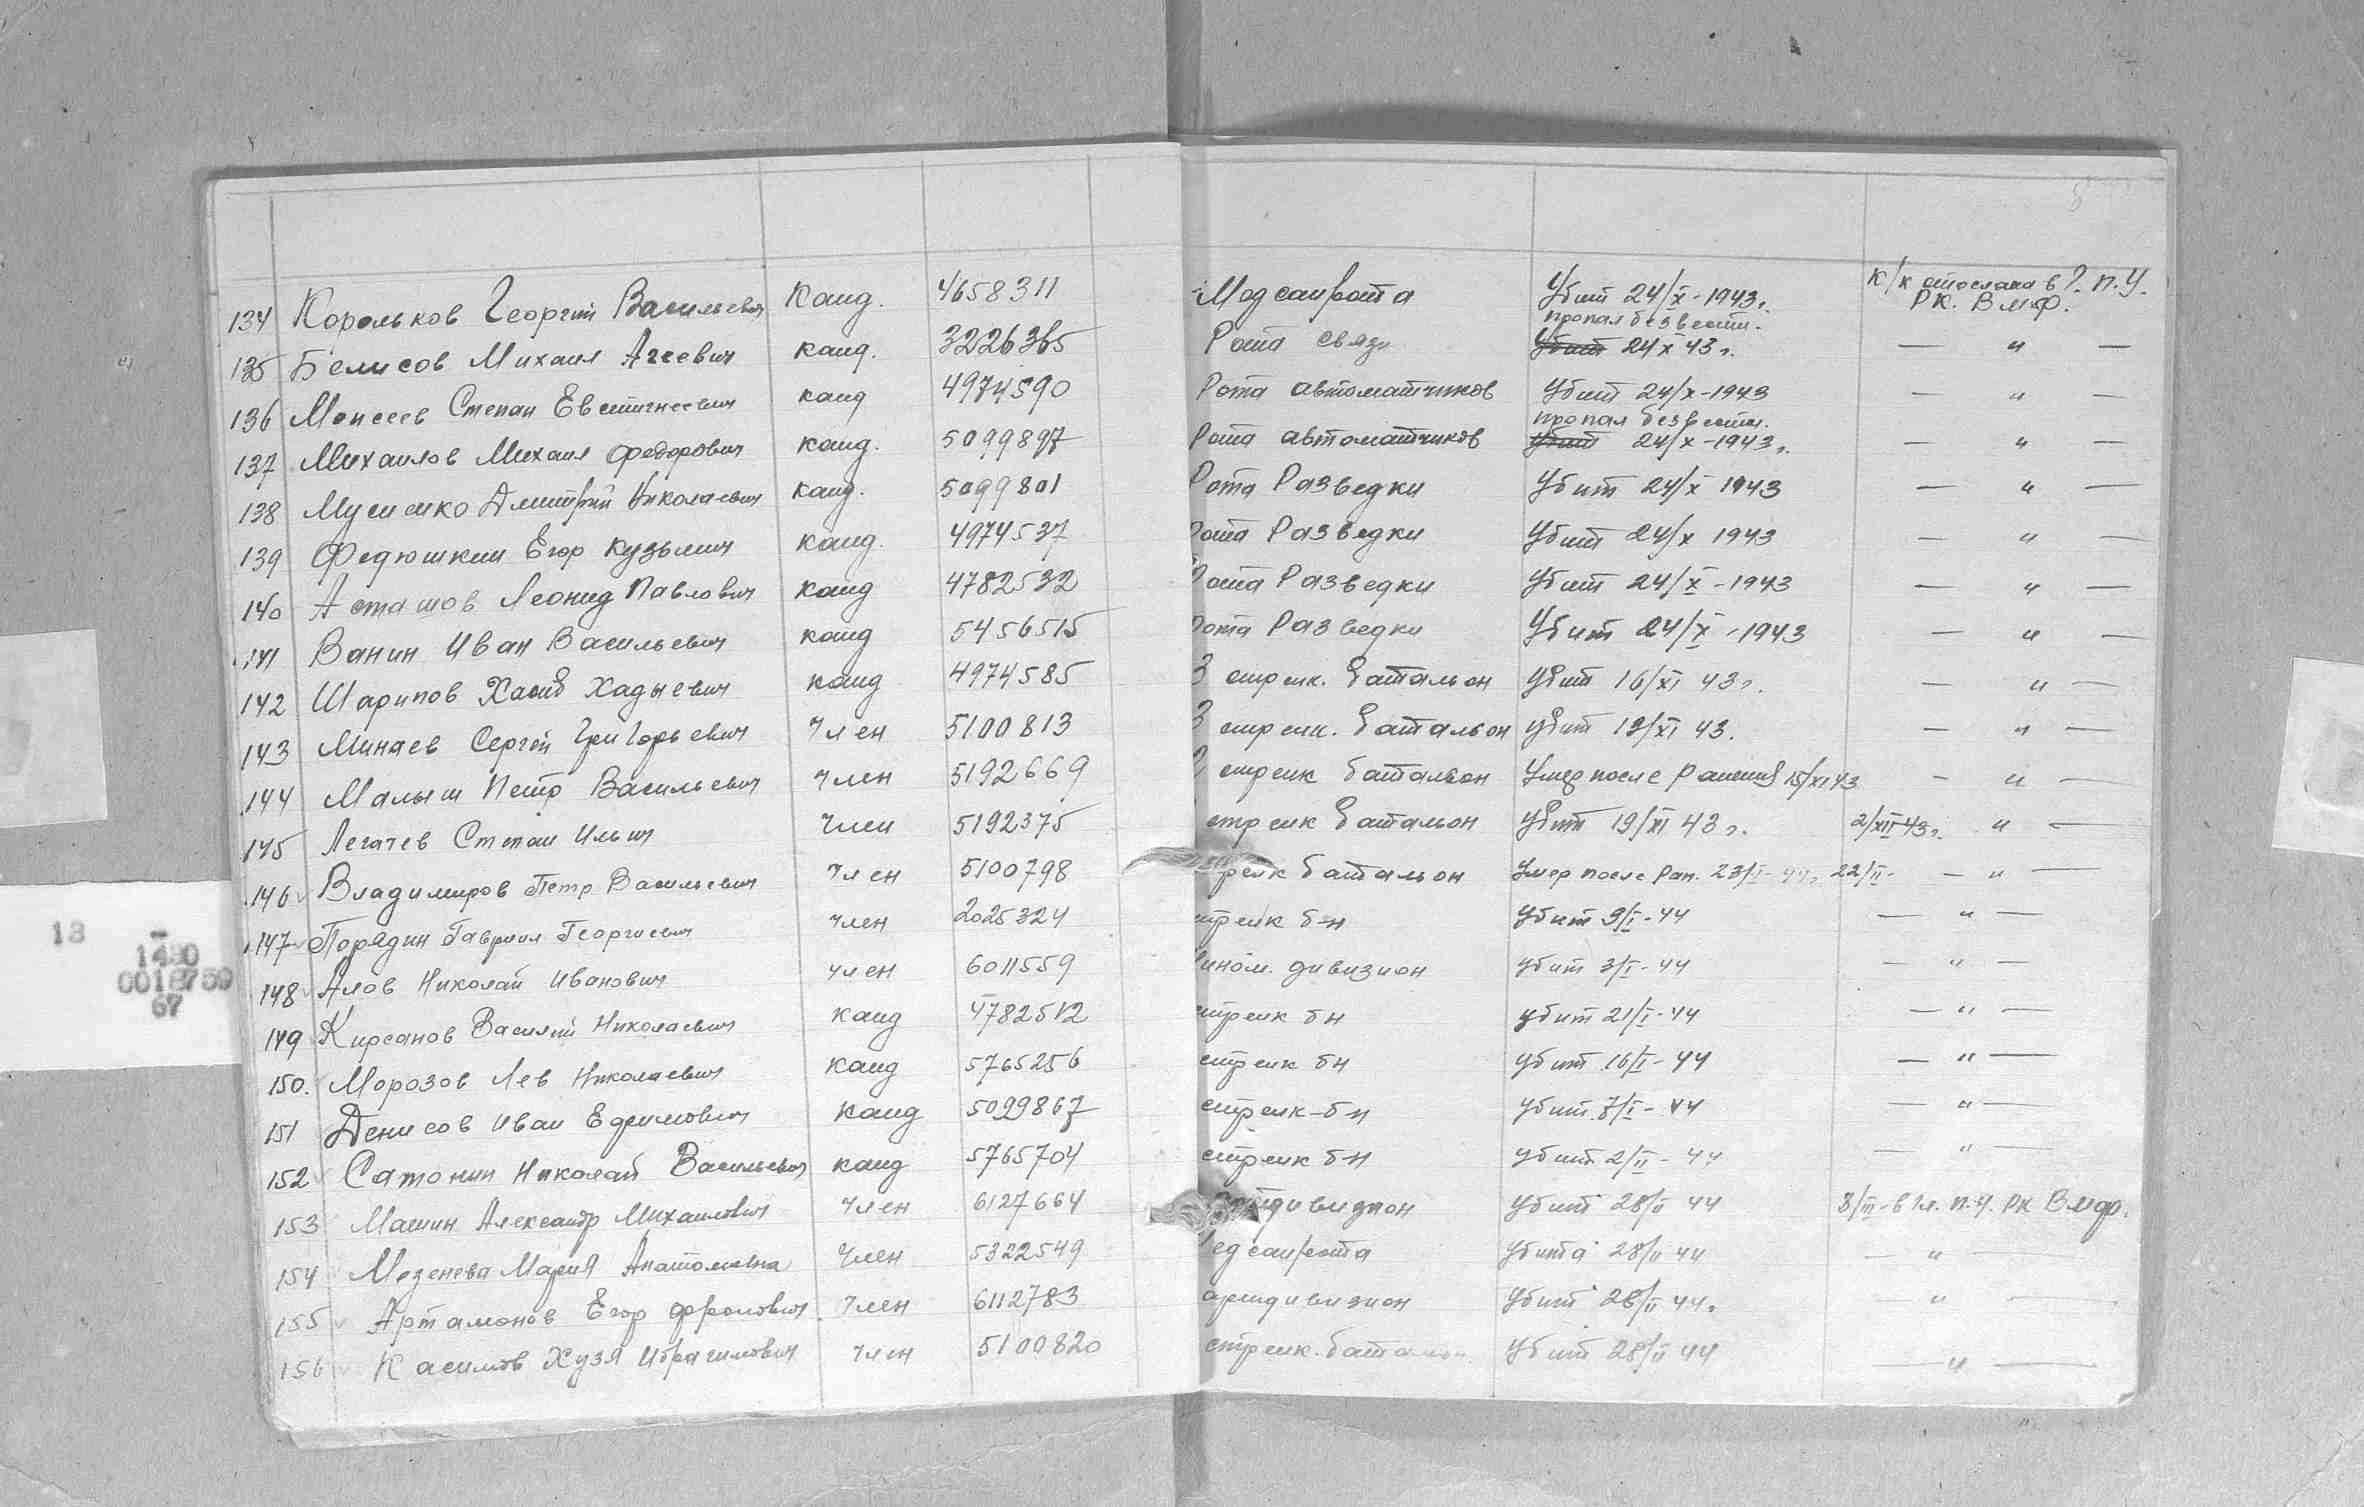 134 Корольков Георгий Васильевич Канд. 4658311 Медсанрота Убит 24/X-1943г. к/к отослана в Г.П.У. РК. ВМФ.
135 Белисов Михаил Агеевич канд. 3226365 Рота связи пропал без вести. Убит 24 X 43 г. — " —
136 Моисеев Степан Евстигнеевич канд 4974590 Рота автоматчиков Убит 24/X-1943 — " —
137 Михайлов Михаил Федорович канд. 5099897 Рота автоматчиков пропал без вести. Убит 24/X-1943 г. — " —
138 Дмитрий Николаевич канд. 5099801 Рота Разведки Убит 24/X 1943 — " —
139 Федюшкин Егор Кузьмич канд. 4974537 Рота Разведки Убит 24/X 1943 — " —
140 Асташов Леонид Павлович канд 4782532 Рота Разведки Убит 24/X-1943 — " —
141 Ванин Иван Васильевич канд 5456515 Рота Разведки Убит 24/X-1943 — " —
142 Шарипов Хадыевич канд 4974585 3 стрелк. батальон Убит 16/XI 43г. — " —
143 Минаев Сергей Григорьевич Член 5100813 3 стрелк. батальон Убит 19/XI 43. — " —
144 Малыш Петр Васильевич член 5192669 стрелк батальон Умер после ранения 15/XI 43 — " —
145 Легачев Степан Ильич Член 5192375 стрелк батальон Убит 19/XI 43 г. 2/XII 43г. " —
146 Владимиров Петр Васильевич Член 5100798 стрелк батальон Умер после ран. 23/I-44г. 22/II- — " —
147 Порядин Гавриил Георгиевич член 2025324 стрелк б-н Убит 9/I-44 — " —
148 Алов Николай Иванович член 6011559 дивизион убит 3/I-44 — " —
149 Кирсанов Василий Николаевич канд 4782512 стрелк бн убит 21/I-44 — " —
150. Морозов Лев Николаевич канд 5765256 стрелк бн убит 16/I-44 — " —
151 Денисов Иван Ефимович канд 5099867 стрелк-бн убит 7/I-44 — " —
152 Сатонин Николай Васильевич канд 5765704 стрелк бн убит 2/II-44 — " —
153 Машин Александр Михайлович Член 6127664 артдивизион Убит 28/II 44 3/III-в Гл. П.У. РК ВМФ.
154 Мезенева Мария Анатольевна Член 5322549 Медсанрота Убита 28/II 44 — " —
155 Артамонов Егор Фролович Член 6112783 артдивизион Убит 28/II 44г. — " —
156 Касимов Хузя Ибрагимович Член 5100820 стрелк. батальон Убит 28/II 44 — " —
13
1430
0018759
67